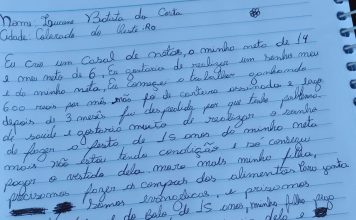 Nome: Luciene Batista da Costa
Cidade: Colorado do Oeste-Ro
Eu crio um Casal de netos, a minha neta de 14
e meu neto de 6, Eu gostaria de realizar um sonho meu
e da minha neta, Eu comecei a trabalhar ganhando
600 reais por mês não foi de carteira assinada e logo
depois de 3 meses fui despedida por que tenho problema
de saude e gostaria muito de realizar o sonho
de fazer a festa de 15 anos da minha neta
mais não estou tendo condição e so consegui
pagar o vestido dela, mora mais minha filha,
precisamos fazer as compras dos alimentos para janta
Somos evangelicas, e precisamos
do bolo, de 15 anos, minha filha
dela e